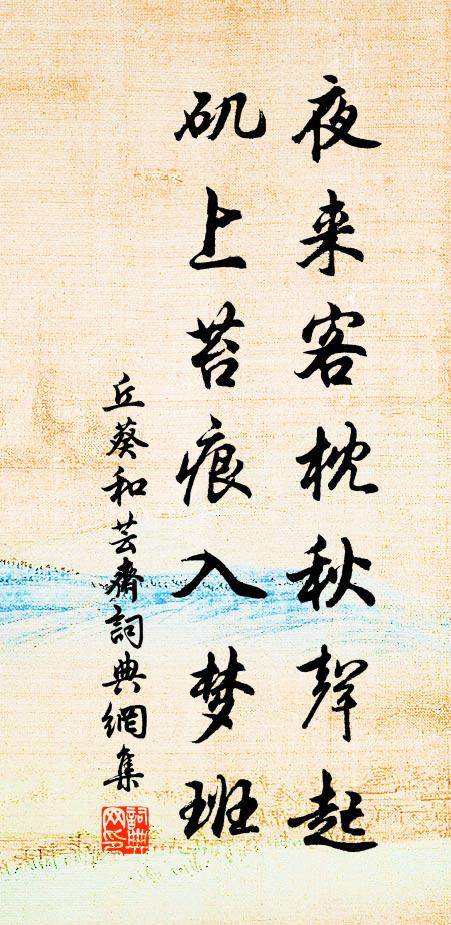 夜来客枕秋聲起
矶上苔痕入梦班
丘葵和芸齋詞典網集
詞典網印